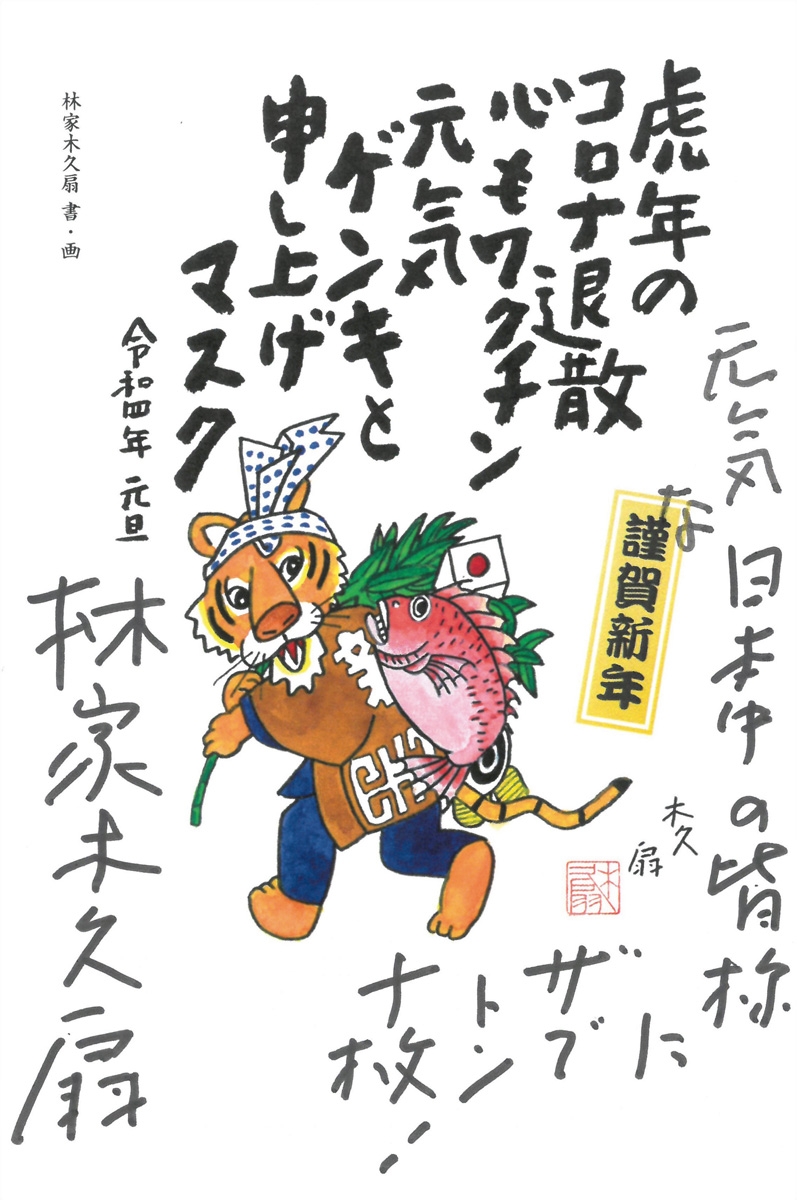 虎年の
コロナ退散
心もワクチン
元気
ゲンキと
申し上げ
マスク
令和四年 元旦
林家木久扇 書・画
謹賀新年
木久扇
元気な日本中の皆様
に
ザブ
トン
十枚!
林家木久扇